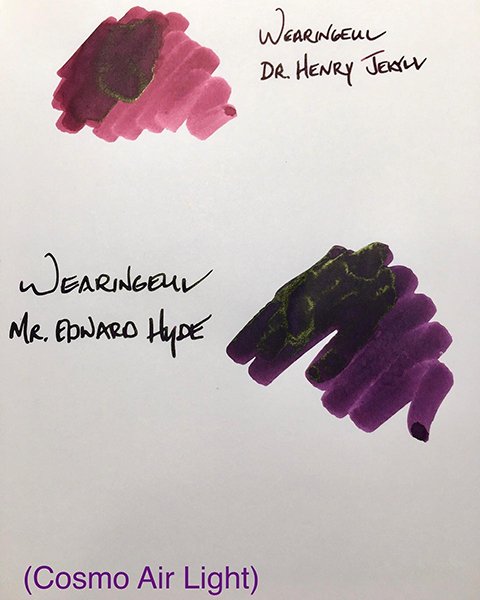 Wearingeul
Dr. Henry Jekyll
Wearingeul
Mr. Edward Hyde
(Cosmo Air Light)